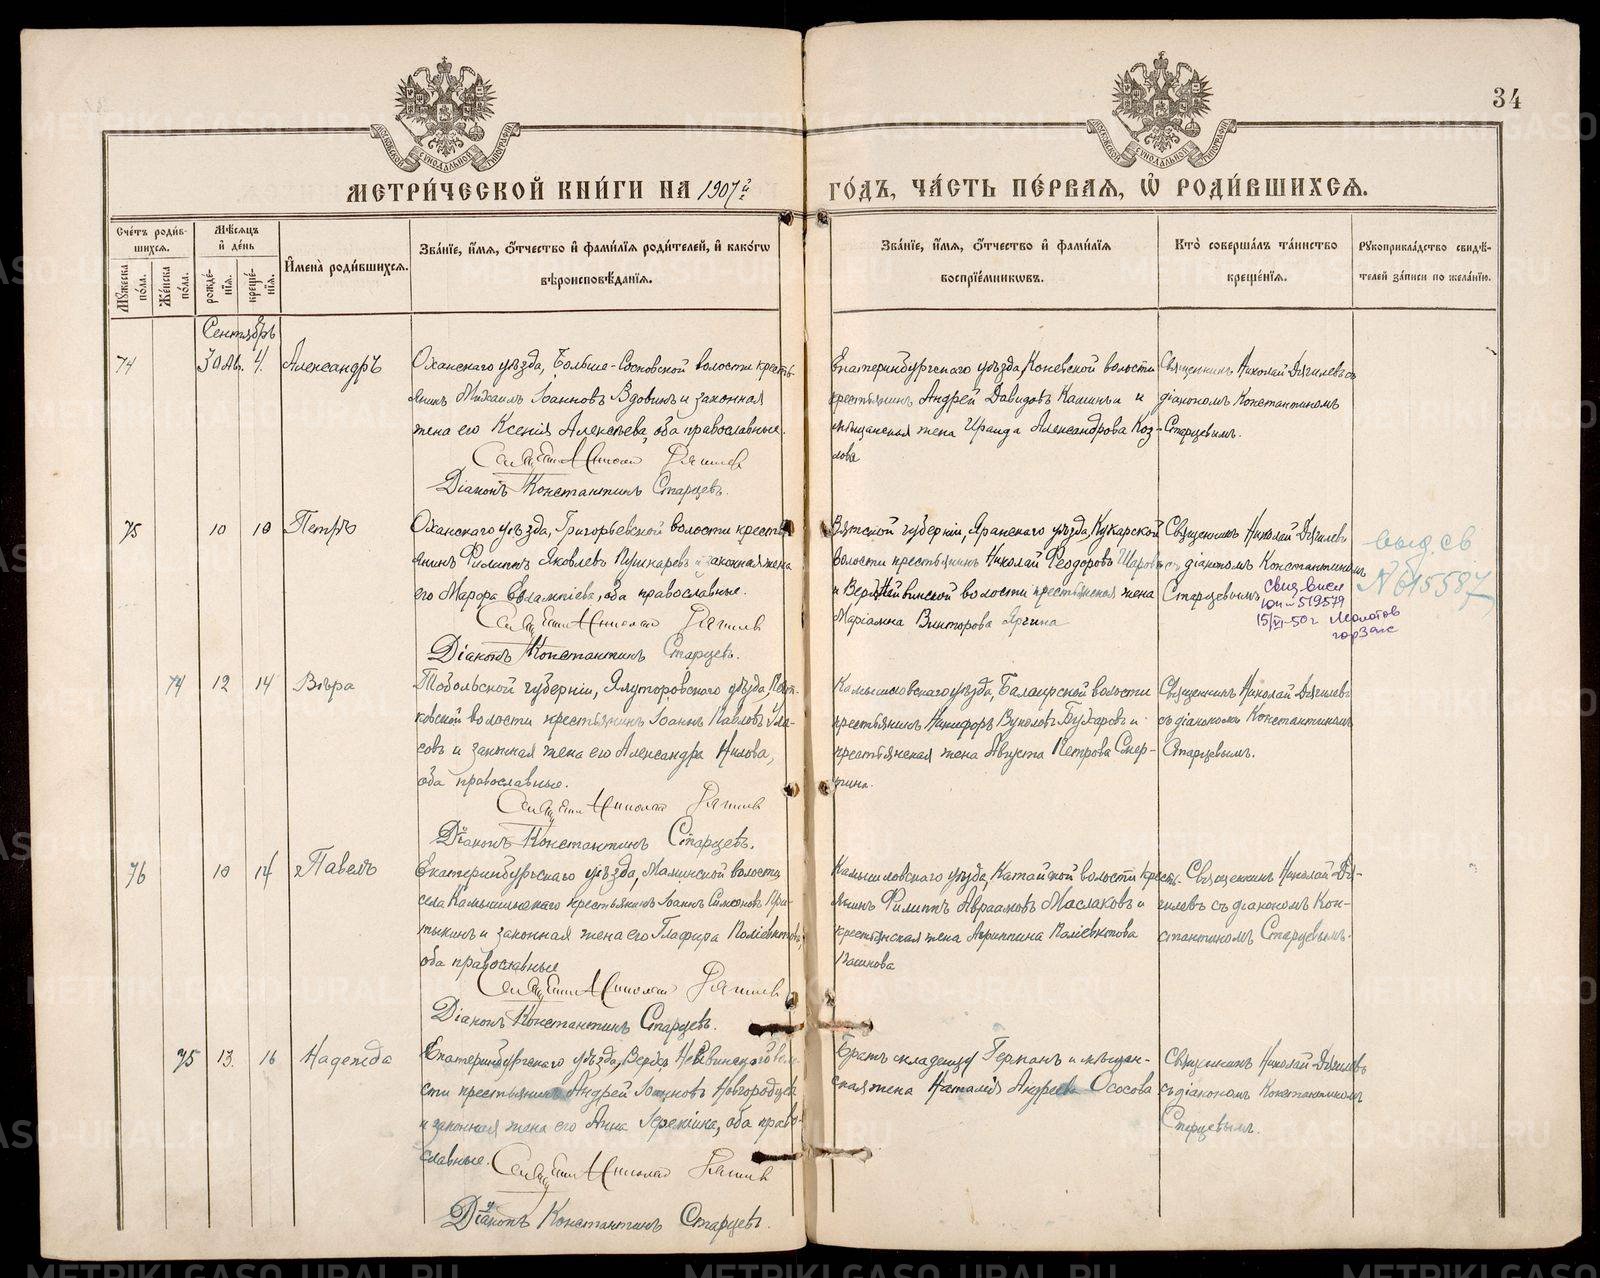 34
МОСКОВСКОЙ СѴНОДАЛЬНОЙ ТИПОГРАФІИ
МОСКОВСКОЙ СѴНОДАЛЬНОЙ ТИПОГРАФІИ
МЕТРИ́ЧЕСКОЙ КНИ́ГИ НА 1907й ГО́ДЪ, ЧА́СТЬ ПЕ́РВАЯ, Ѽ РОДИ́ВШИХСЯ.
Сче́тъ роди́в-
шихся.
Мѣ́сяцъ
и҆ де́нь
Му́жеска по́ла.
Же́нска по́ла.
рожде́-
нїя.
креще́-
нїя.
И҆мена̀ роди́вшихся.
Зва́нїе, и҆́мя, ѻ҆́тчество и҆ фами́лїя роди́телей, и҆ како́гѡ
вѣроисповѣ́данїя.
Зва́нїе, и҆́мя, ѻ҆́тчество и҆ фами́лїя
воспрїе́мникѡвъ.
Кто̀ соверша́лъ та́инство
креще́нїя.
Рꙋкоприкла́дство свидѣ́-
телей за́писи по жела́нїю.
Сентябрь
74 30 Ав. 4. Александръ
Оханскаго уѣзда, Больше-Сосновской волости кресть-
янинъ Михаилъ Іоанновъ Вдовинъ и законная
жена его Ксенія Алексѣева, оба православные.
Николай
Діаконъ Константинъ Старцевъ.
Екатеринбургскаго уѣзда, Коневской волости
крестьянинъ Андрей Давидовъ Канинъ и
мѣщанская жена Ираида Александрова Коз-
лова
Священникъ Николай Дягилевъ съ
діакономъ Константиномъ
Старцевымъ.
75 10 10 Петръ
Оханскаго уѣзда, Григорьевской волости кресть-
янинъ Филиппъ Яковлевъ Пушкаревъ и законная жена
его Марѳа Евлампіева, оба православные.
Николай
Діаконъ Константинъ Старцевъ.
Вятской губерніи, Яранскаго уѣзда, Кукарской
волости крестьянинъ Николай Ѳеодоровъ Шаровъ
и Верхнейвинской волости крестьянская жена
Маріамна Викторова Яргина
Священникъ Николай Дягилевъ
съ діакономъ Константиномъ
Старцевымъ.
519579
15/VI-50 г Молотов
горЗагс
выд. св
№ 615587
74 12 14 Вѣра
Тобольской губерніи, Ялуторовскаго уѣзда, Пят-
ковской волости крестьянинъ Іоаннъ Павловъ Ула-
совъ и законная жена его Александра Нилова,
оба православные.
Николай
Діаконъ Константинъ Старцевъ.
Камышловскаго уѣзда, Балаирской волости
крестьянинъ Никифоръ Вуколовъ Бухаровъ и
крестьянская жена Августа Петрова Смер-
тина.
Священникъ Николай Дягилевъ
съ діакономъ Константиномъ
Старцевымъ.
76 10 14 Павелъ
Екатеринбургскаго уѣзда, Маминской волости
села Камышинскаго крестьянинъ Іоаннъ Симеоновъ При-
тыкинъ и законная жена его Глафира Поліевктова,
оба православные
Николай
Діаконъ Константинъ Старцевъ.
Камышловскаго уѣзда, Катайской волости кресть-
янинъ Филиппъ Авраамовъ Маслаковъ и
крестьянская жена Агриппина Поліевктова
Священникъ Николай Дя-
гилевъ съ діакономъ Кон-
стантиномъ Старцевымъ.
75 13. 16 Надежда
Екатеринбургскаго уѣзда, Верхъ Нейвинской воло-
сти крестьянинъ Андрей Іоанновъ Новгородцевъ
и законная жена его Анна Іереміина, оба право-
славные.
Николай
Діаконъ Константинъ Старцевъ.
Братъ младенцу Германъ и мѣщан-
ская жена Наталія Андреева Ососова
Священникъ Николай Дягилевъ
съ діакономъ Константиномъ
Старцевымъ.
METRIKI.GASO-URAL.RU